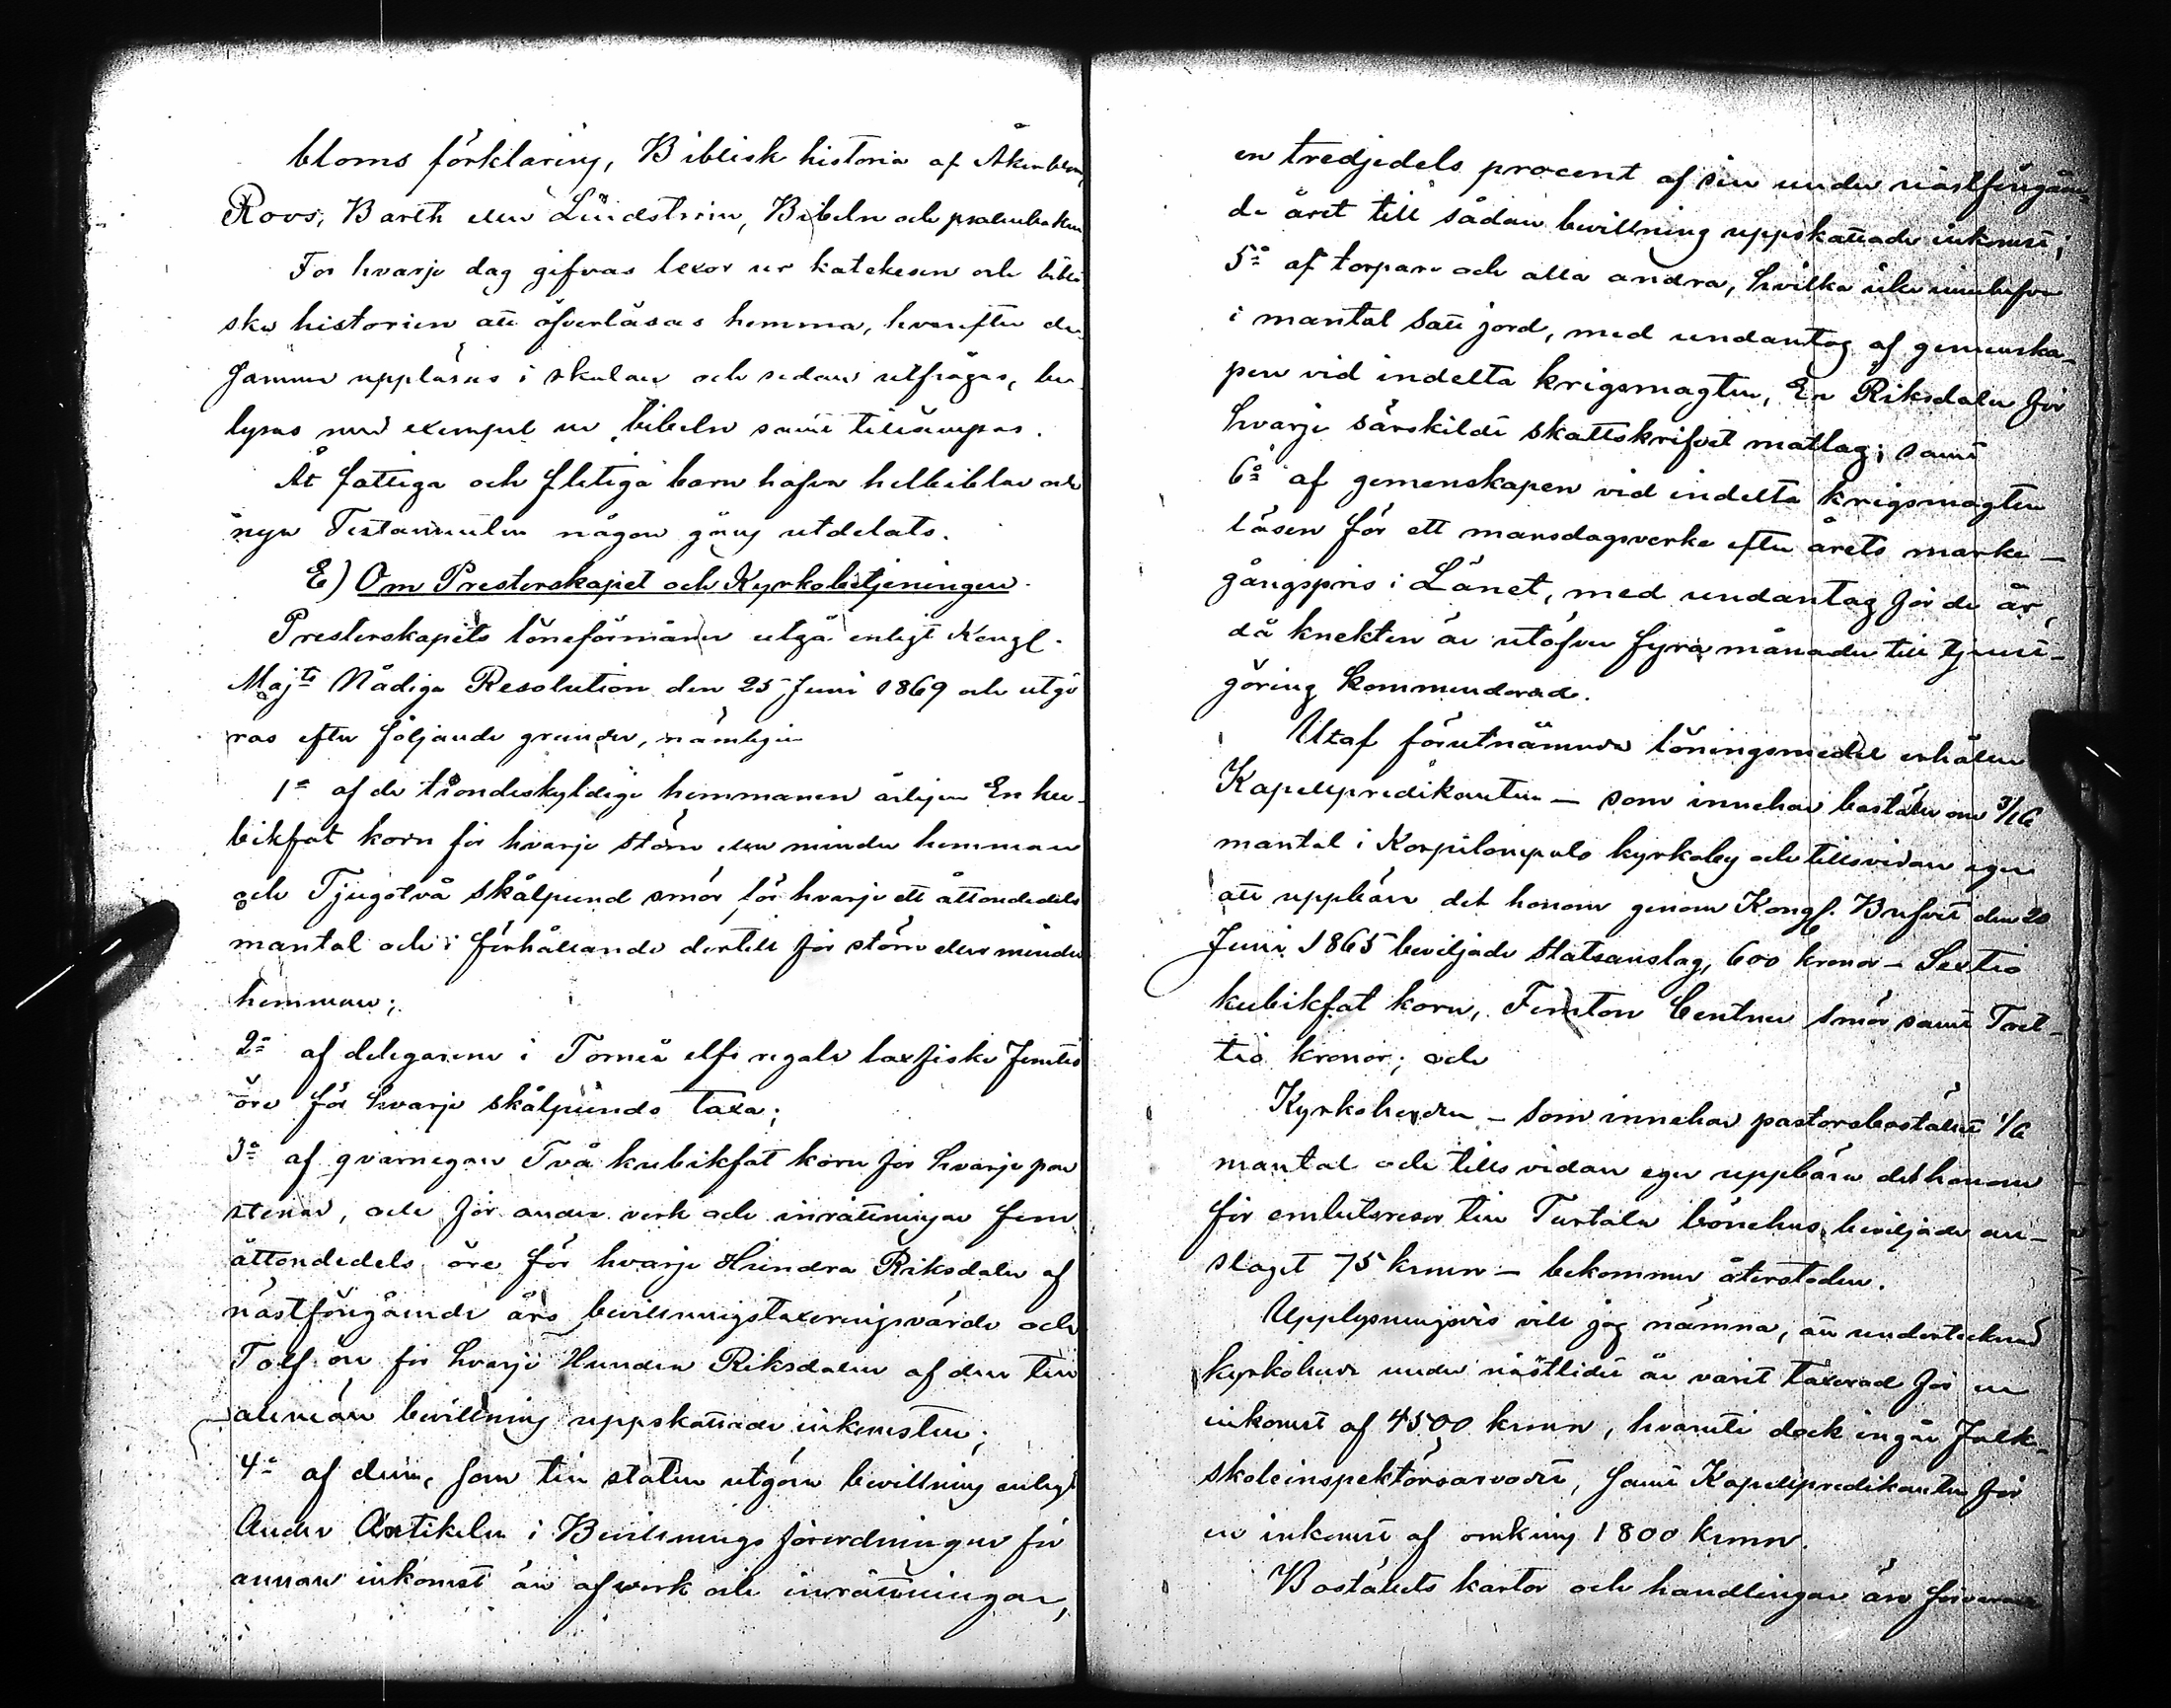 bloms förklaring, Biblisk historia af Åkerblom,
Roos, Barth eller Lindström, Bibeln och psalmboken
För hvarje dag gifvas lexor ur katekesen och bibli
ska historien att öfverläsas hemma, hvarefter de
samma uppläsas i skolan och sedan utfrågas, be-
lysas med exempel ur bibeln samt tillämpas.
Åt fattiga och flitiga barn hafva helbiblar och
nya Testamenten någon gång utdelats.
E) Om Presterskapet och Kyrkobetjeningen.
Presterskapets löneförmåner utgå enligt Kongl.
Majts Nådiga Resolution den 25 Juni 1869 och utgö
ras efter följande grunder, nämligen
1o af de tiondeskyldige hemmanen årligen En ku-
bikfot korn för hvarje större eller mindre hemman
och Tjugotvå skålpund smör för hvarje ett åttondedels
mantal och i förhållande dertill för större eller mindre
hemman;
2o af delegarene i Torneå elfs regala laxfiske Femtio
öre för hvarje skålpunds taxa;
3o af qvarnegare Två kubikfot korn för hvarje par
stenar, och för andra verk och inrättningar fem
åttondedels öre för hvarje Hundra Riksdaler af
nästföregående års bevillningstaxeringsvärde och
Tolf öre för hvarje Hundra Riksdaler af den till
allmän bevillning uppskattade inkomsten;
4o af dem, som till staten utgöra bevillning enligt
Andra Artikeln i Bevillnings förordningen för
annan inkomst än af verk och inrättningar,
en tredjedels procent af sin under nästföregåen-
de året till sådan bevillning uppskattade inkomst;
5o af torpare och alla andra, hvilka icke innehafva
i mantal satt jord, med undantag af gemenska-
pen vid indelta krigsmagten, En Riksdaler för
hvarje särskildt skattskrifvet matlag; samt
6o af gemenskapen vid indelta krigsmagten
lösen för ett mansdagsverke efter årets marke-
gångspris i Länet, med undantag för de år,
då knekten är utöfver fyra månader till tjenst-
göring kommenderad.
Utaf förutnämnda löningsmedel erhåller
Kapellpredikanten — som innehar boställe om 3/16
mantal i Korpilompolo kyrkoby och tillsvidare eger
att uppbära det honom genom Kongl. Brefvet den 20
Juni 1865 beviljade statsanslag, 600 kronor — Sextio
kubikfot korn, Femton Centner smör samt Tret-
tio kronor; och
Kyrkoherden — som innehar pastorsbostället 1/6
mantal och tills vidare eger uppbära det honom
för embetsresor till Turtola bönehus beviljade an-
slaget 75 kronor — bekommer återstoden.
Upplysningsvis vill jag nämna, att undertecknad
kyrkoherde under nästlidet år varit taxerad för en
inkomst af 4500 kronor, hvaruti dock ingår Folk-
skoleinspektörsarvodet, samt Kapellpredikanten för
en inkomst af omkring 1800 kronor.
Boställets kartor och handlingar äro